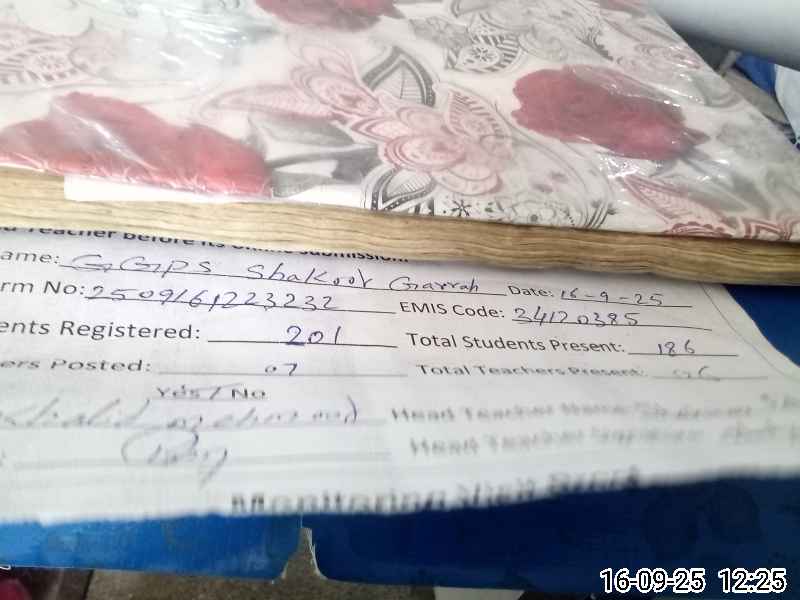 Teacher before its online submission.
ame: GGPS Shakoor Garrah Date: 16-9-25
rm No: 2509161223232 EMIS Code: 34120385
ents Registered: 201 Total Students Present: 186
ers Posted: 07 Total Teachers Present: 06
Yes / No
Head Teacher Name:
Head Teacher Signature:
Monitoring Visit
16-09-25 12:25